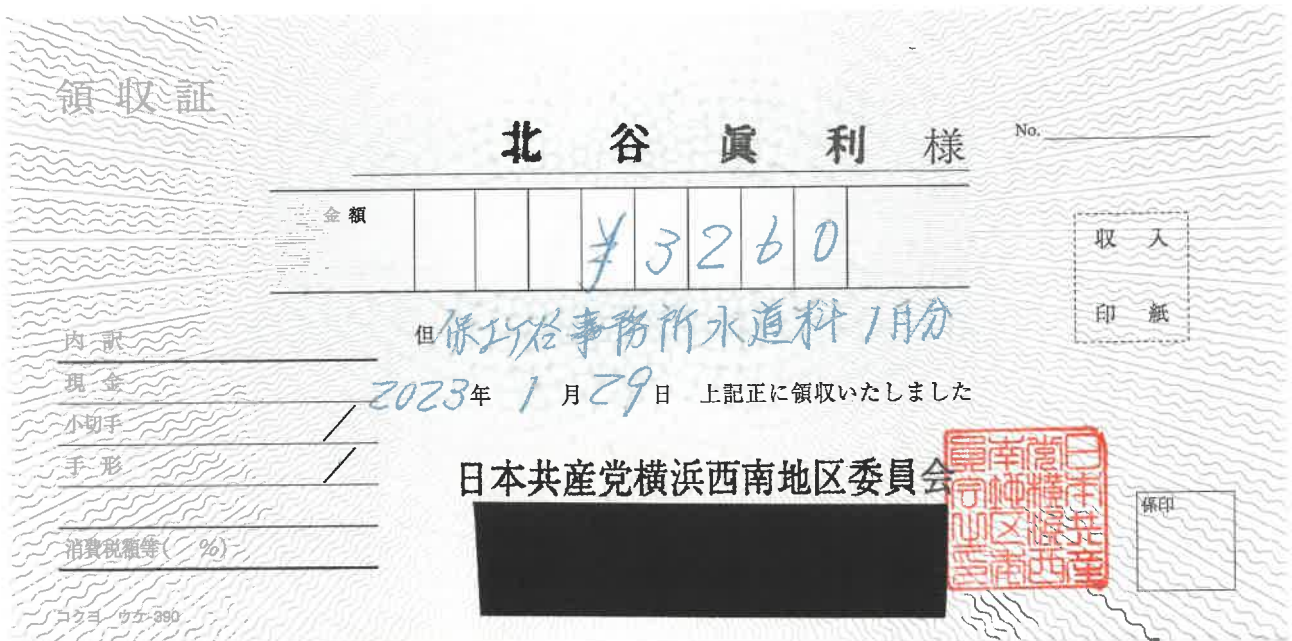 領収証
北谷眞利 様
No.
金額 ¥3260
収入
印紙
但 保土ケ谷事務所水道料 1月分
2023年 1月29日 上記正に領収いたしました
内訳
現金
小切手 /
手形 /
消費税額等( %)
日本共産党横浜西南地区委員会
係印
コクヨ ウケ-390